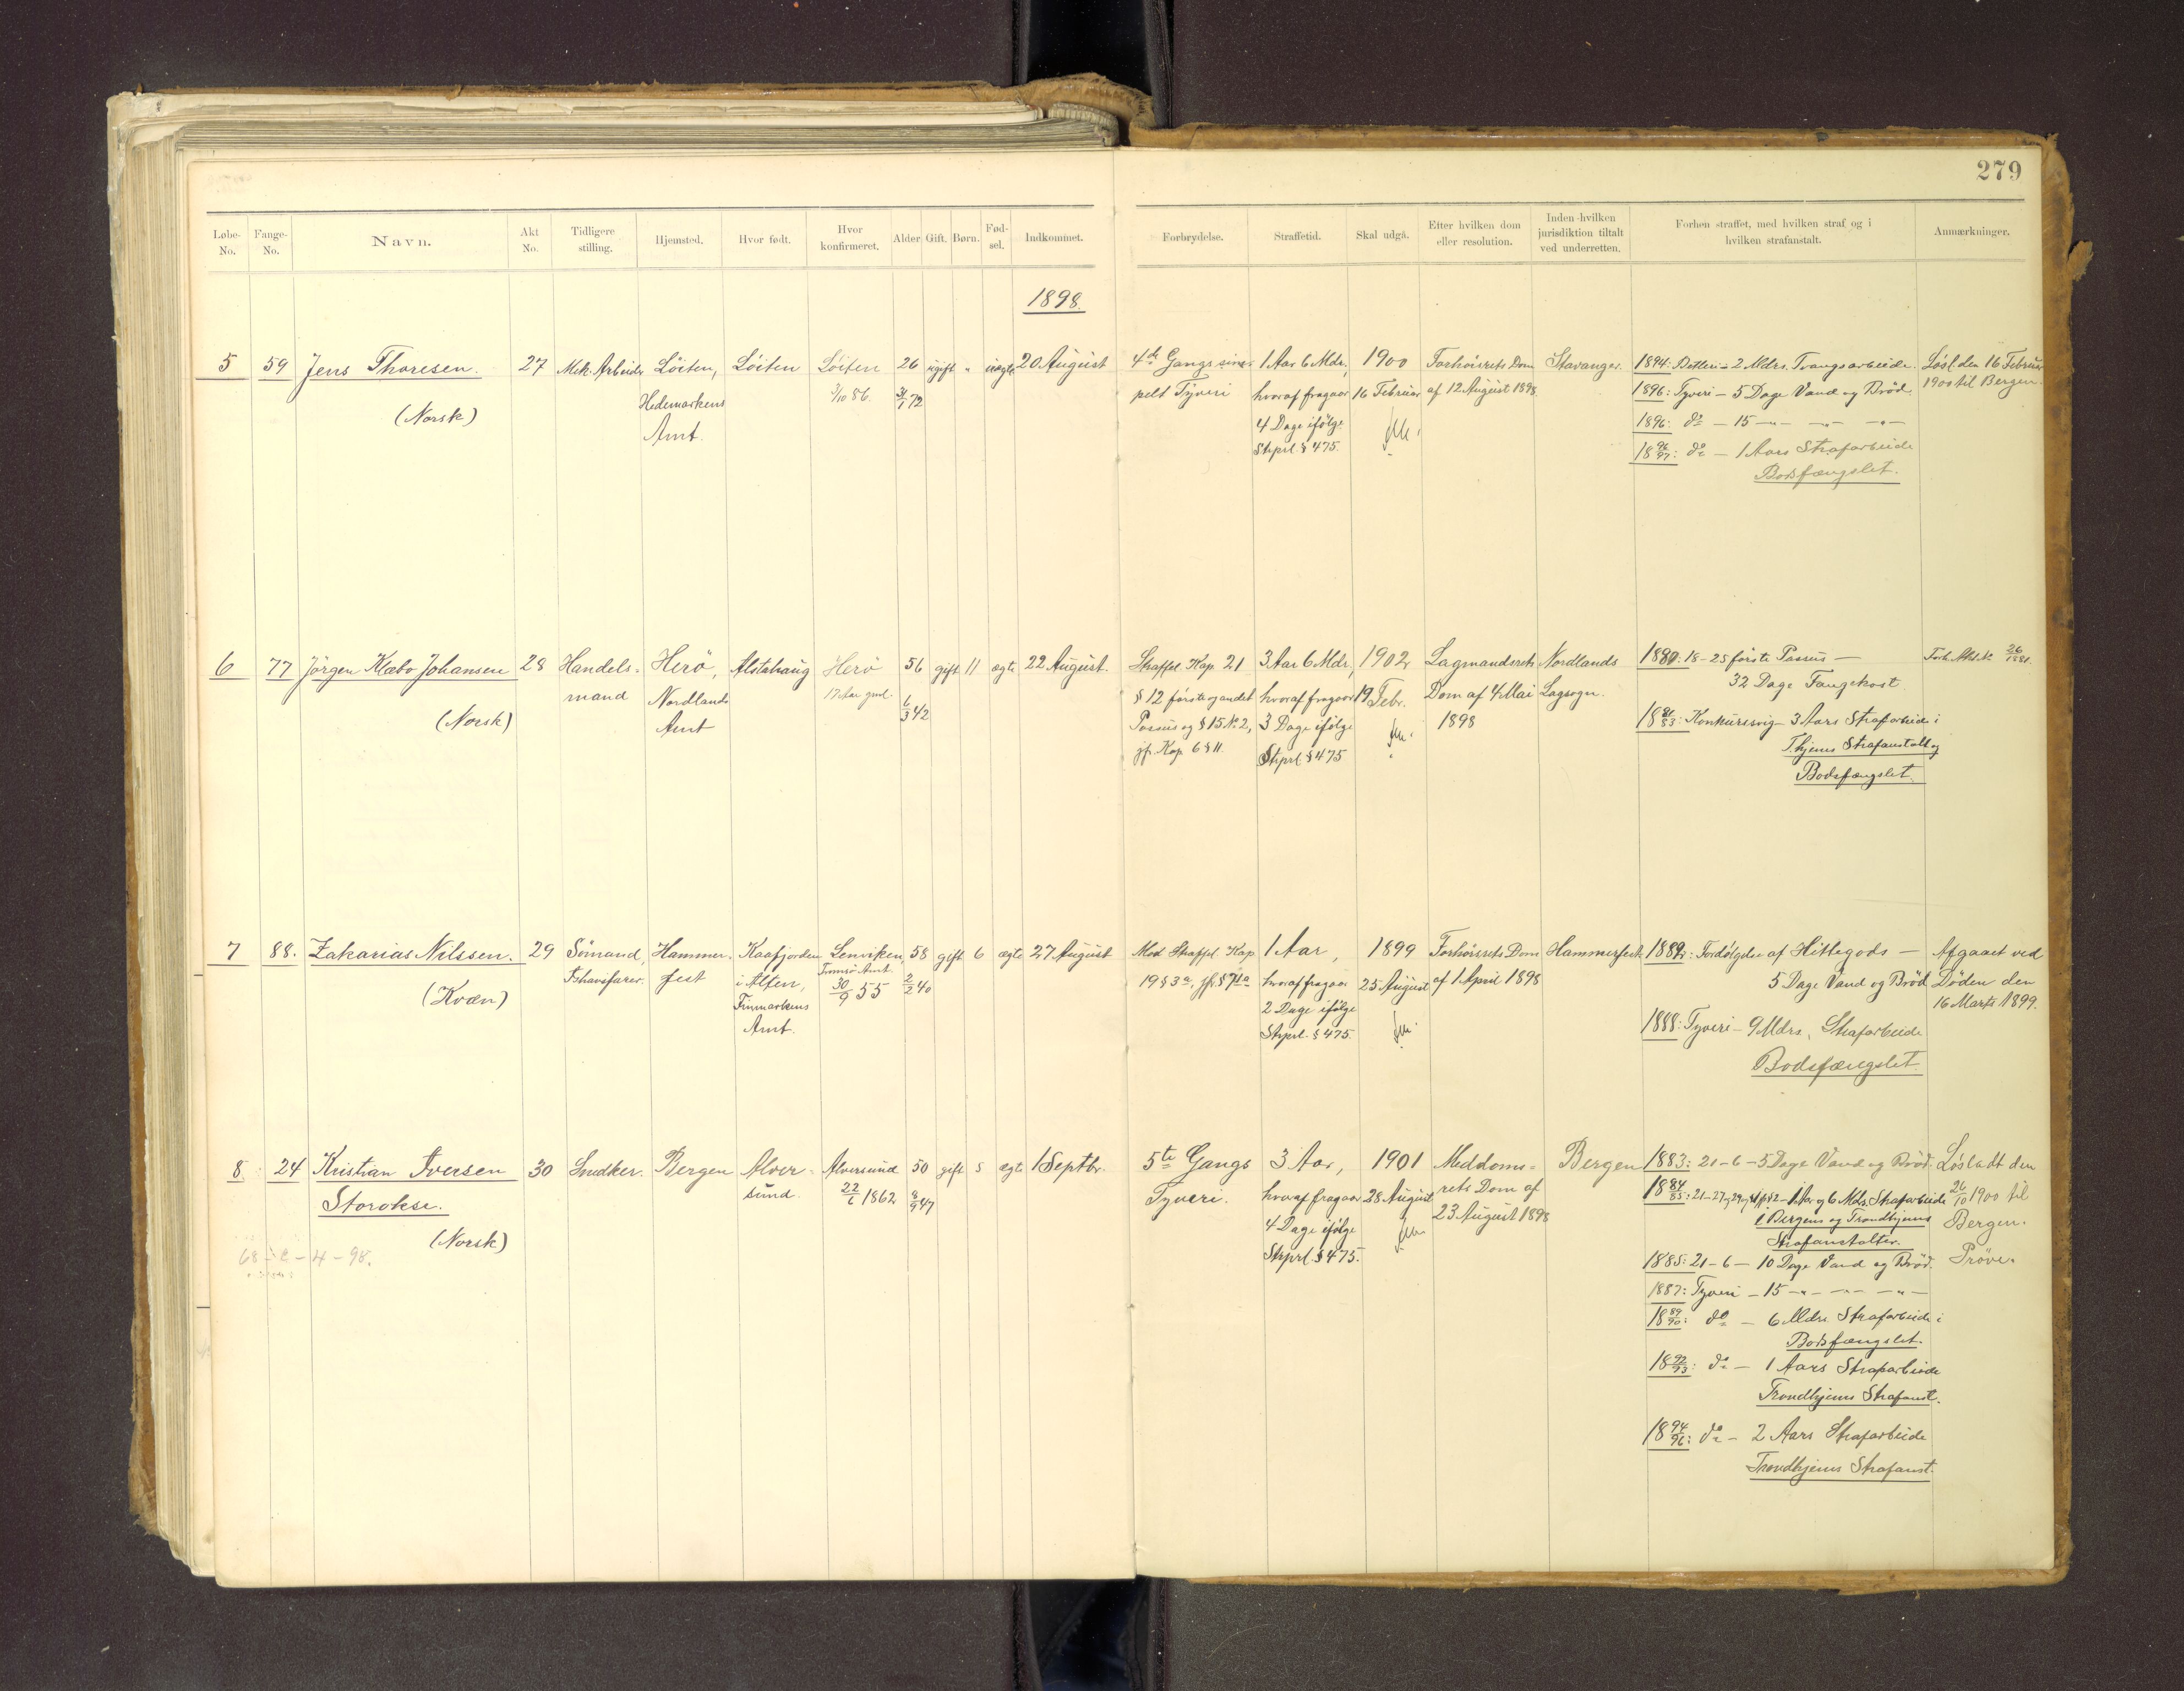 279
Løbe-No.
Fange-No.
Navn.
Akt No.
Tidligere stilling.
Hjemsted.
Hvor født.
Hvor konfirmeret.
Alder.
Gift.
Børn.
Fød-sel.
Indkommet.
Forbrydelse.
Straffetid.
Skal udgå.
Efter hvilken dom eller resolution.
Inden hvilken jurisdiktion tiltalt ved underretten.
Forhen straffet, med hvilken straf og i hvilken strafanstalt.
Anmærkninger.
1898.
5 59 Jens Thoresen. 27 Mek. Arbeider Löiten, Löiten Löiten 26 ugift " uægte 20 August
Hedemarkens 3/10 86. 31/1 72
(Norsk) Amt.
4de Gangs sim- 1 Aar 6 Mdr, 1900 Forhörsrets Dom Stavanger. 1894: Betleri - 2 Mdrs. Tvangsarbeide. Løsl. den 16 Februar
pelt Tyveri hvoraf fragaar 16 Februar af 12 August 1898. 1896: Tyveri - 5 Dage Vand og Bröd. 1900 til Bergen.
4 Dage ifölge 1896: do - 15 -"- -"- -"-
Strprl. § 475. 18 96/97: do - 1 Aars Strafarbeide
Bodsfængslet.
6 77 Jörgen Klæbo Johansen 28 Handels- Herö, Alstahaug Herö 56 gift 11 ægte 22 August.
mand Nordlands 17 Aar gml. 6/3 42
(Norsk) Amt
Straffel. Kap. 21 3 Aar 6 Mdr, 1902 Lagmandsrets Nordlands 1880: 18-25 förste Passus -
§ 12 förste og andet hvoraf fragaar 19 Febr. Dom af 4 Mai Lagsogn. 32 Dage Fangekost
Passus og § 15 No. 2, 3 Dage ifölge 1898 18 81/83: Konkurssvig - 3 Aars Strafarbeide i
jfr. Kap. 6 § 11. Strprl. § 475 T.hjems Strafanstalt og
Bodsfængslet.
7 88. Zakarias Nilssen. 29 Sömand, Hammer- Kaafjorden Lenviken, 58 gift 6 ægte 27 August
Ishavsfarer. fest i Alten, Tromsö Amt. 2/2 40
(Kvæn) Finmarkens 30/9 55
Amt.
Mod Straffel. Kap 1 Aar, 1899 Forhörsrets Dom Hammerfest 1882: Fordölgelse af Hittegods - Afgaaet ved
hvoraf fragaar 25 August af 1 April 1898 5 Dage Vand og Bröd Döden den
2 Dage ifölge 16 Marts 1899.
Strprl. § 475. 1888: Tyveri - 9 Mdrs. Strafarbeide
Bodsfængslet
8. 24 Kristian Iversen 30 Snedker. Bergen Alver- Alversund 50 gift 5 ægte 1 Septbr.
Storokse. sund. 22/6 1862 8/9 47
(Norsk)
5te Gangs 3 Aar, 1901 Meddoms- Bergen 1883: 21-6 - 5 Dage Vand og Bröd. Lösladt den
Tyveri. hvoraf fragaar 28 August rets Dom af 26/10 1900 til
4 Dage ifölge 23 August 1898 i Bergens og Trondhjems Bergen.
Strprl. § 475. Strafanstalter. Pröve.
1885: 21-6 - 10 Dage Vand og Bröd.
1887: Tyveri - 15 -"- -"- -"-
18 89/90: do - 6 Mdrs. Strafarbeide i
Bodsfængslet.
18 92/93: do - 1 Aars Strafarbeide
Trondhjems Strafanst.
18 94/96: do - 2 Aars Strafarbeide
Trondhjems Strafanst.